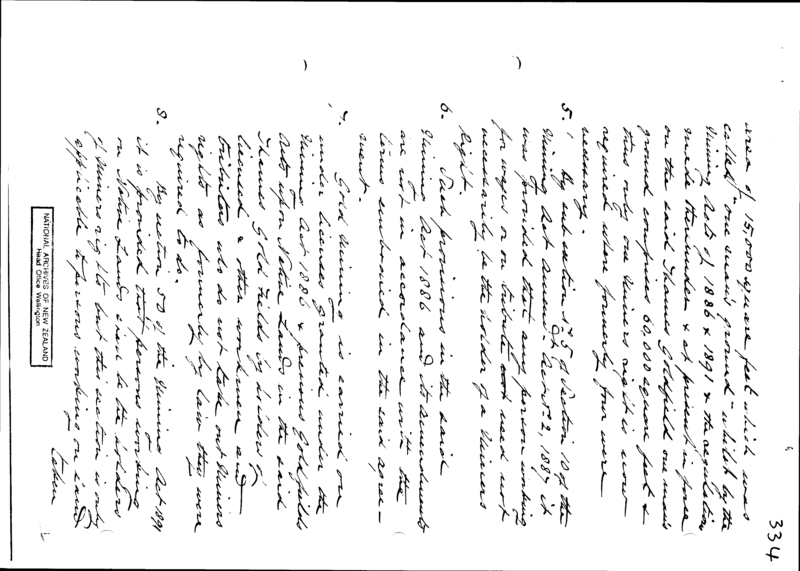 334
area of 15,000 square feet which was
called "one man's ground" whilst by the
Mining Acts of 1886 & 1891 & the regulations
made thereunder & at present in force
on the said Thames Goldfield one man's
ground comprises 60,000 square feet &
thus only one Miners right is now
required where formerly four were
necessary.
5. By subsection 5 of Section 10 of the
Mining Act Amdt Act No 2, 1887 it
was provided that any person working
for wages or on tribute need not
necessarily be the holder of a Miners
Right
6. Such provisions in the said
Mining Act 1886 and its amendments
are not in accordance with the
terms embodied in the said agree-
ment.
7. Gold Mining is carried on
under licenses granted under the
Mining Act 1886 & previous Goldfields
Acts upon Native Lands in the said
Thames Gold Fields by holders of
licenses & other workmen and
tributers who do not take out Miners
rights as formerly by law they were
required to do.
8. By section 50 of the Mining Act 1891
it is provided that persons working
on Native Lands even to be the holders
of Miners rights but this section is only
applicable to persons working on land
taken
NATIONAL ARCHIVES OF NEW ZEALAND
Head Office Wellington